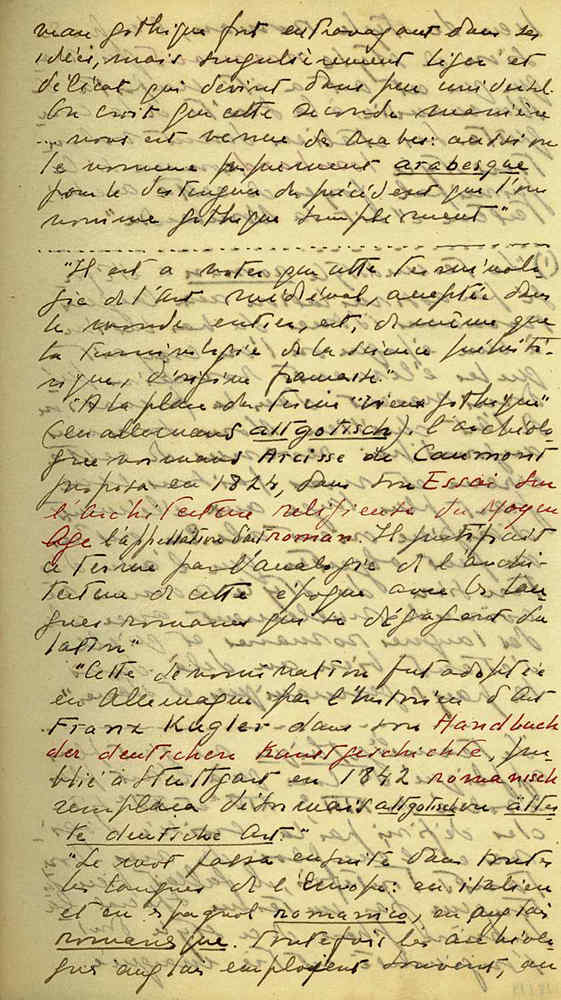 veau gothique fort extravagant dans ses
idées, mais singulièrement léger et
délicat qui devint dans peu universel.
On croit que cette seconde manière
nous est venue des Arabes: aussi on
le nomme proprement arabesque
pour le distinguer du précédent que l'on
nomme gothique simplement"
"Il est à noter que cette terminolo-
gie de l'Art médiéval, acceptée dans
le monde entier, est, de même que
la terminologie de la science préhisto-
rique, d'origine française."
"A la place du terme "vieux gothique"
(en allemand altgotisch), l'archéolo-
gue normand Arcisse de Caumont
proposa en 1824, dans son Essai sur
l'architecture religieuse du Moyen
Age l'appellation d'art roman. Il justifiait
ce terme par l'analogie de l'archi-
tecture de cette époque avec les lan-
gues romanes qui se dégagent du
latin"
"Cette dénomination fut adoptée
en Allemagne par l'historien d'Art
Franz Kugler dans son Handbuch
der deutschen Kunstgeschichte, pu-
blié à Stuttgart en 1842 romanisch
remplaça désormais altgotisch ou ältes
te deutsche Art."
"Le mot passa ensuite dans toutes
les langues de l'Europe: en italien
et en espagnol romanico, en anglais
romanesque. Toutefois les archéolo-
gues anglais emploient souvent, au